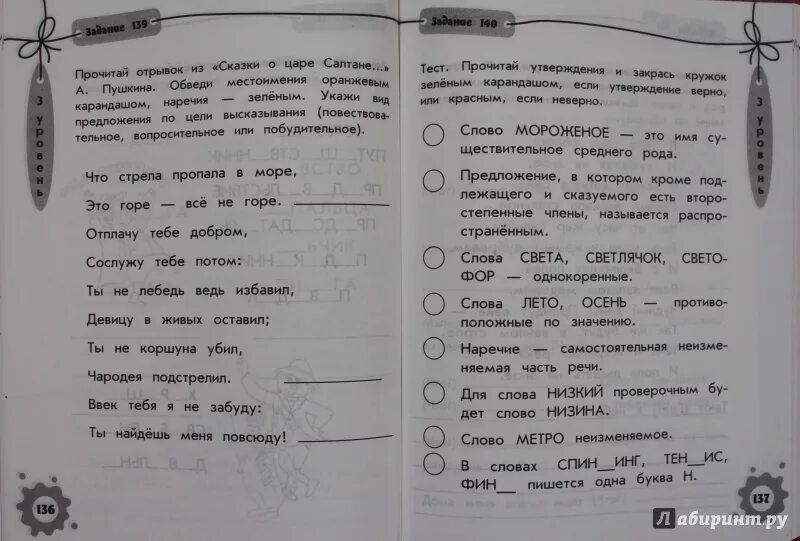 Задание 139
Прочитай отрывок из «Сказки о царе Салтане...»
А. Пушкина. Обведи местоимения оранжевым
карандашом, наречия — зелёным. Укажи вид
предложения по цели высказывания (повествова-
тельное, вопросительное или побудительное).
3 уровень
Что стрела пропала в море,
Это горе — всё не горе.
Отплачу тебе добром,
Сослужу тебе потом:
Ты не лебедь ведь избавил,
Девицу в живых оставил;
Ты не коршуна убил,
Чародея подстрелил.
Ввек тебя я не забуду:
Ты найдёшь меня повсюду!
136
Задание 140
Тест. Прочитай утверждения и закрась кружок
зелёным карандашом, если утверждение верно,
или красным, если неверно.
3 уровень
Слово МОРОЖЕНОЕ — это имя су-
ществительное среднего рода.
Предложение, в котором кроме под-
лежащего и сказуемого есть второ-
степенные члены, называется распро-
странённым.
Слова СВЕТА, СВЕТЛЯЧОК, СВЕТО-
ФОР — однокоренные.
Слова ЛЕТО, ОСЕНЬ — противо-
положные по значению.
Наречие — самостоятельная неизме-
няемая часть речи.
Для слова НИЗКИЙ проверочным бу-
дет слово НИЗИНА.
Слово МЕТРО неизменяемое.
В словах СПИН__ИНГ, ТЕН__ИС,
ФИН__ пишется одна буква Н.
137
Лабиринт.ру